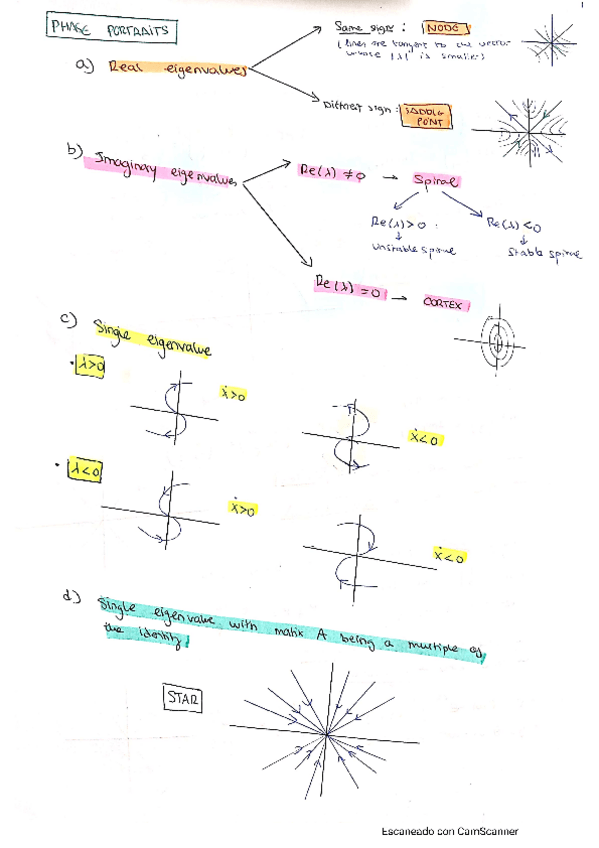 1
PHASE PORTRAITS
Same sign : NODE
(lines are tangent to the vector
whose |λ| is smaller)
a) Real eigenvalues
Different sign : SADDLE
POINT
b) Imaginary eigenvalues
Re(λ) ≠ 0 → Spiral
Re(λ) > 0 Re(λ) < 0
Unstable spiral Stable spiral
Re(λ) = 0 → CORTEX
c) Single eigenvalue
• λ>0
ẋ>0
ẋ<0
• λ<0
ẋ>0
ẋ<0
d) Single eigenvalue with matix A being a multiple of
the identity
STAR
Escaneado con CamScanner